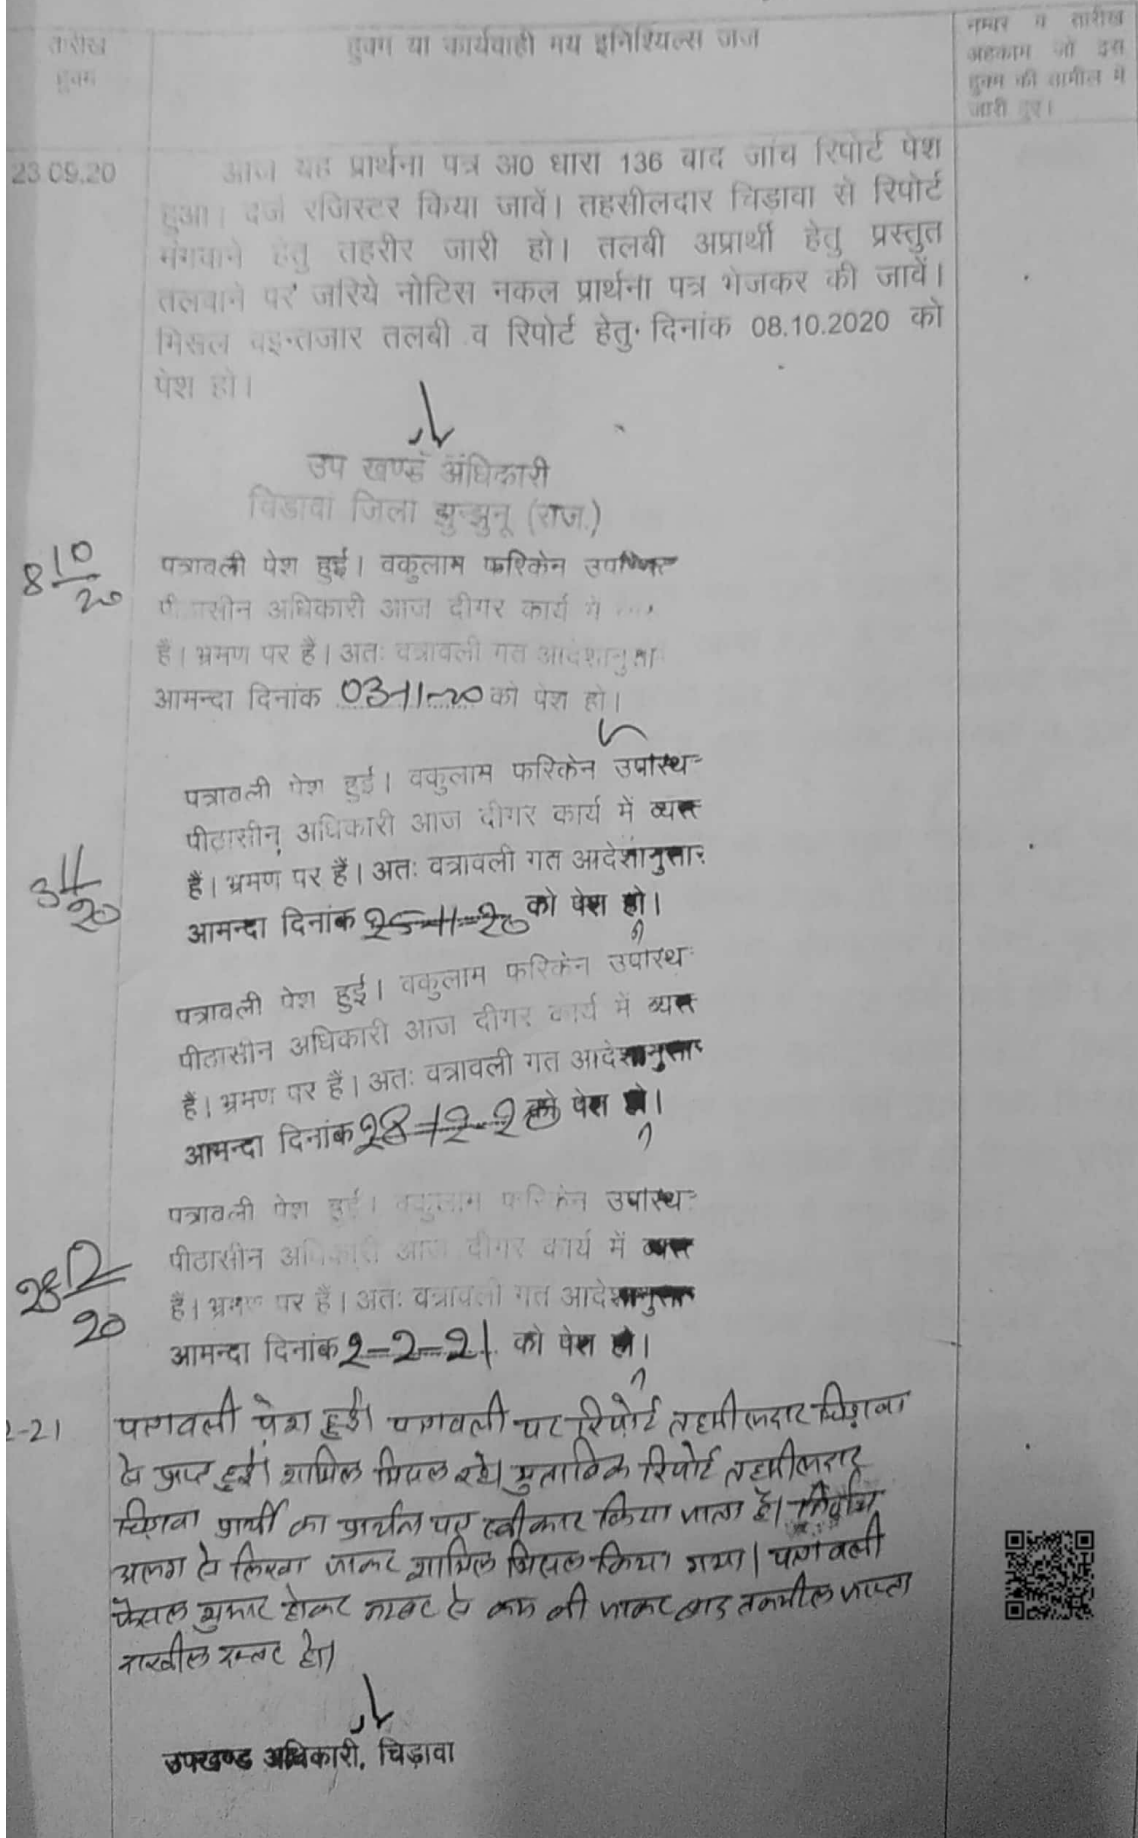 तारीख हुक्म
हुक्म या कार्यवाही मय इनिश्यिल्स जज
नम्बर व तारीख
अहकाम जो इस
हुक्म की तामील में
जारी हुए।
23.09.20
आज यह प्रार्थना पत्र अ0 धारा 136 बाद जांच रिपोर्ट पेश
हुआ। दर्ज रजिस्टर किया जावें। तहसीलदार चिड़ावा से रिपोर्ट
मंगवाने हेतु तहरीर जारी हो। तलबी अप्रार्थी हेतु प्रस्तुत
तलवाने पर जरिये नोटिस नकल प्रार्थना पत्र भेजकर की जावें।
मिसल वइन्तजार तलबी व रिपोर्ट हेतु दिनांक 08.10.2020 को
पेश हो।
उप खण्ड अधिकारी
चिडावा जिला झुन्झुनू (राज.)
8 10/20
पत्रावली पेश हुई। वकुलाम फरिकेन
पीठासीन अधिकारी आज दीगर कार्य में
हैं। भ्रमण पर है। अतः वत्रावली गत
आमन्दा दिनांक 03-11-20 को पेश हो।
3 11/20
पत्रावली पेश हुई। वकुलाम फरिकेन उपस्थि
पीठासीन अधिकारी आज दीगर कार्य में व्यस्त
हैं। भ्रमण पर हैं। अतः वत्रावली गत आदेशानुसार
आमन्दा दिनांक 25-11-20 को पेश हो।
पत्रावली पेश हुई। वकुलाम फरिकेन उपस्थि
पीठासीन अधिकारी आज दीगर कार्य में व्यस्त
हैं। भ्रमण पर हैं। अतः वत्रावली गत आदेशानुसार
आमन्दा दिनांक 28-12-20 को पेश हो।
28 12/20
पत्रावली पेश हुई। वकुलाम फरिकेन उपस्थि
पीठासीन अधिकारी आज दीगर कार्य में व्यस्त
हैं। भ्रमण पर हैं। अतः वत्रावली गत आदेशानुसार
आमन्दा दिनांक 2-2-21 को पेश हो।
2-21
पत्रावली पेश हुई। पत्रावली पर रिपोर्ट तहसीलदार चिड़ावा
से प्राप्त हुई। शामिल मिसल रहे। मुताबिक रिपोर्ट तहसीलदार
चिड़ावा प्रार्थी का प्रार्थना पत्र स्वीकार किया जाता है। निर्णय
अलग से लिखा जाकर शामिल मिसल किया गया। पत्रावली
फैसल शुमार होकर नम्बर से कम की जाकर बाद तकमील जाप्ता
दाखील दफ्तर हो।
उपखण्ड अधिकारी, चिड़ावा